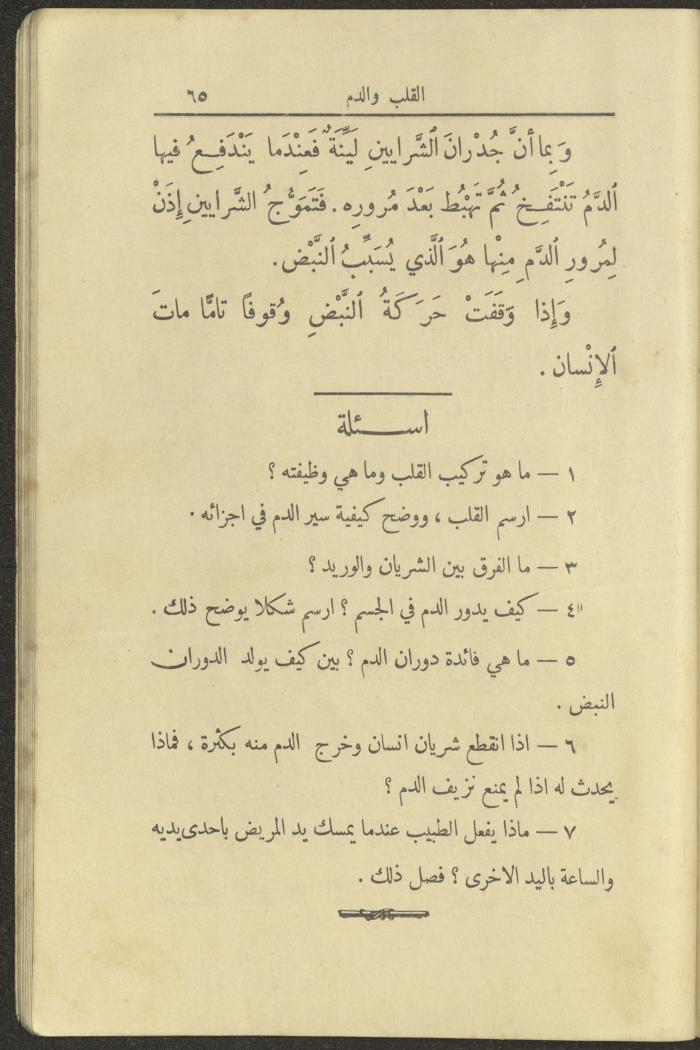 القلب والدم ٦٥
وَبِما أنَّ جُدْرانَ ٱلشَّرايينِ لَيِّنَةٌ فَعِنْدَما يَنْدَفِعُ فيها
ٱلدَّمُ تَنْتَفِخُ ثُمَّ تَهْبُط بَعْدَ مُروره . فَتَمَوُّجُ الشَّرايينِ إِذَنْ
لِمُرورِ ٱلدَّمِ مِنْها هُوَ ٱلَّذي يُسَبِّبُ ٱلنَّبْض .
وَإِذا وَقَفَتْ حَرَكَةُ ٱلنَّبْضِ وُقوفاً تامًّا ماتَ
ٱلإِنْسان .
اسـئلة
١ — ما هو تركيب القلب وما هي وظيفته ؟
٢ — ارسم القلب ، ووضح كيفية سير الدم في اجزائه .
٣ — ما الفرق بين الشريان والوريد ؟
٤ — كيف يدور الدم في الجسم ؟ ارسم شكلا يوضح ذلك .
٥ — ما هي فائدة دوران الدم ؟ بين كيف يولد الدوران
النبض .
٦ — اذا انقطع شريان انسان وخرج الدم منه بكثرة ، فماذا
يحدث له اذا لم يمنع نزيف الدم ؟
٧ — ماذا يفعل الطبيب عندما يمسك يد المريض باحدى يديه
والساعة باليد الاخرى ؟ فصل ذلك .